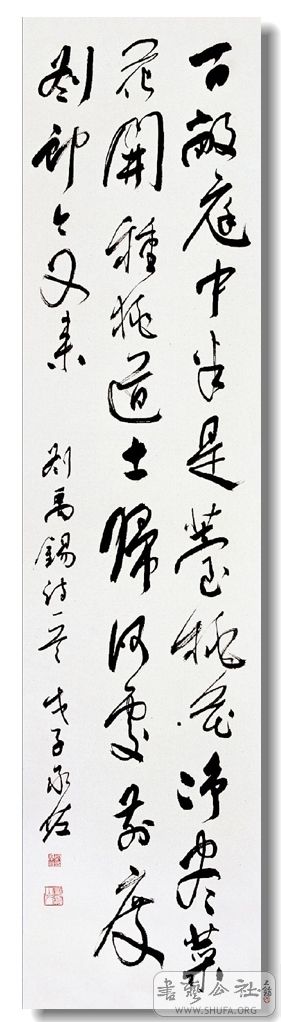 百畝庭中半是薹桃花净尽菜
花開種桃道士歸何處前度
劉郎今又来
劉禹錫詩一首 戊子
書藝公社
WWW.SHUFA.ORG